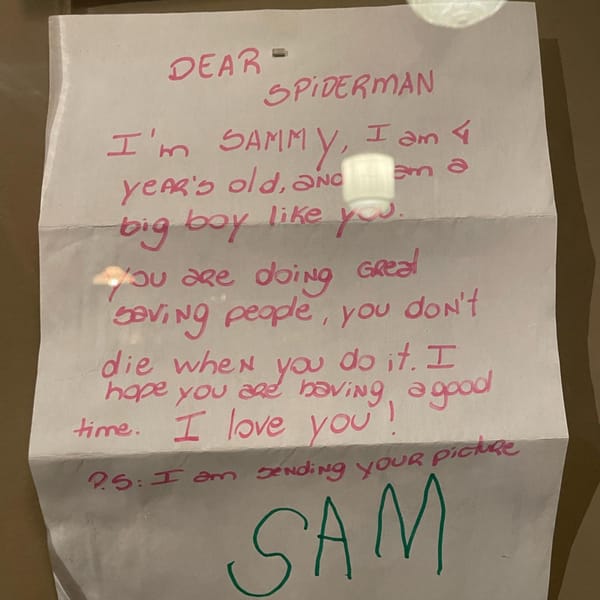 DEAR
SPIDERMAN
I'm SAMMY, I am 4
YEAR'S old, AND am a
big boy like you.
you are doing Great
saving people, you don't
die when you do it. I
hope you are having a good
time. I love you!
P.S: I am sending your picture
SAM